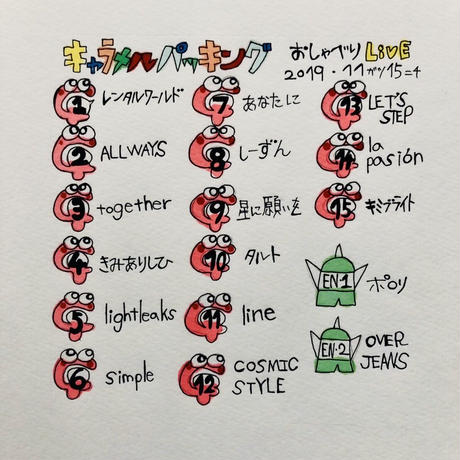 キャラメルパッキング
おしゃべりLiVE
2019.11ガツ15ニチ
1 レンタルワールド
2 ALLWAYS
3 together
4 きみありしひ
5 lightleaks
6 simple
7 あなたに
8 しーずん
9 星に願いを
10 タルト
11 line
12 COSMIC
STYLE
13 LET'S
STEP
14 la
pasión
15 キミブライト
EN・1 ポロリ
EN・2 OVER
JEANS